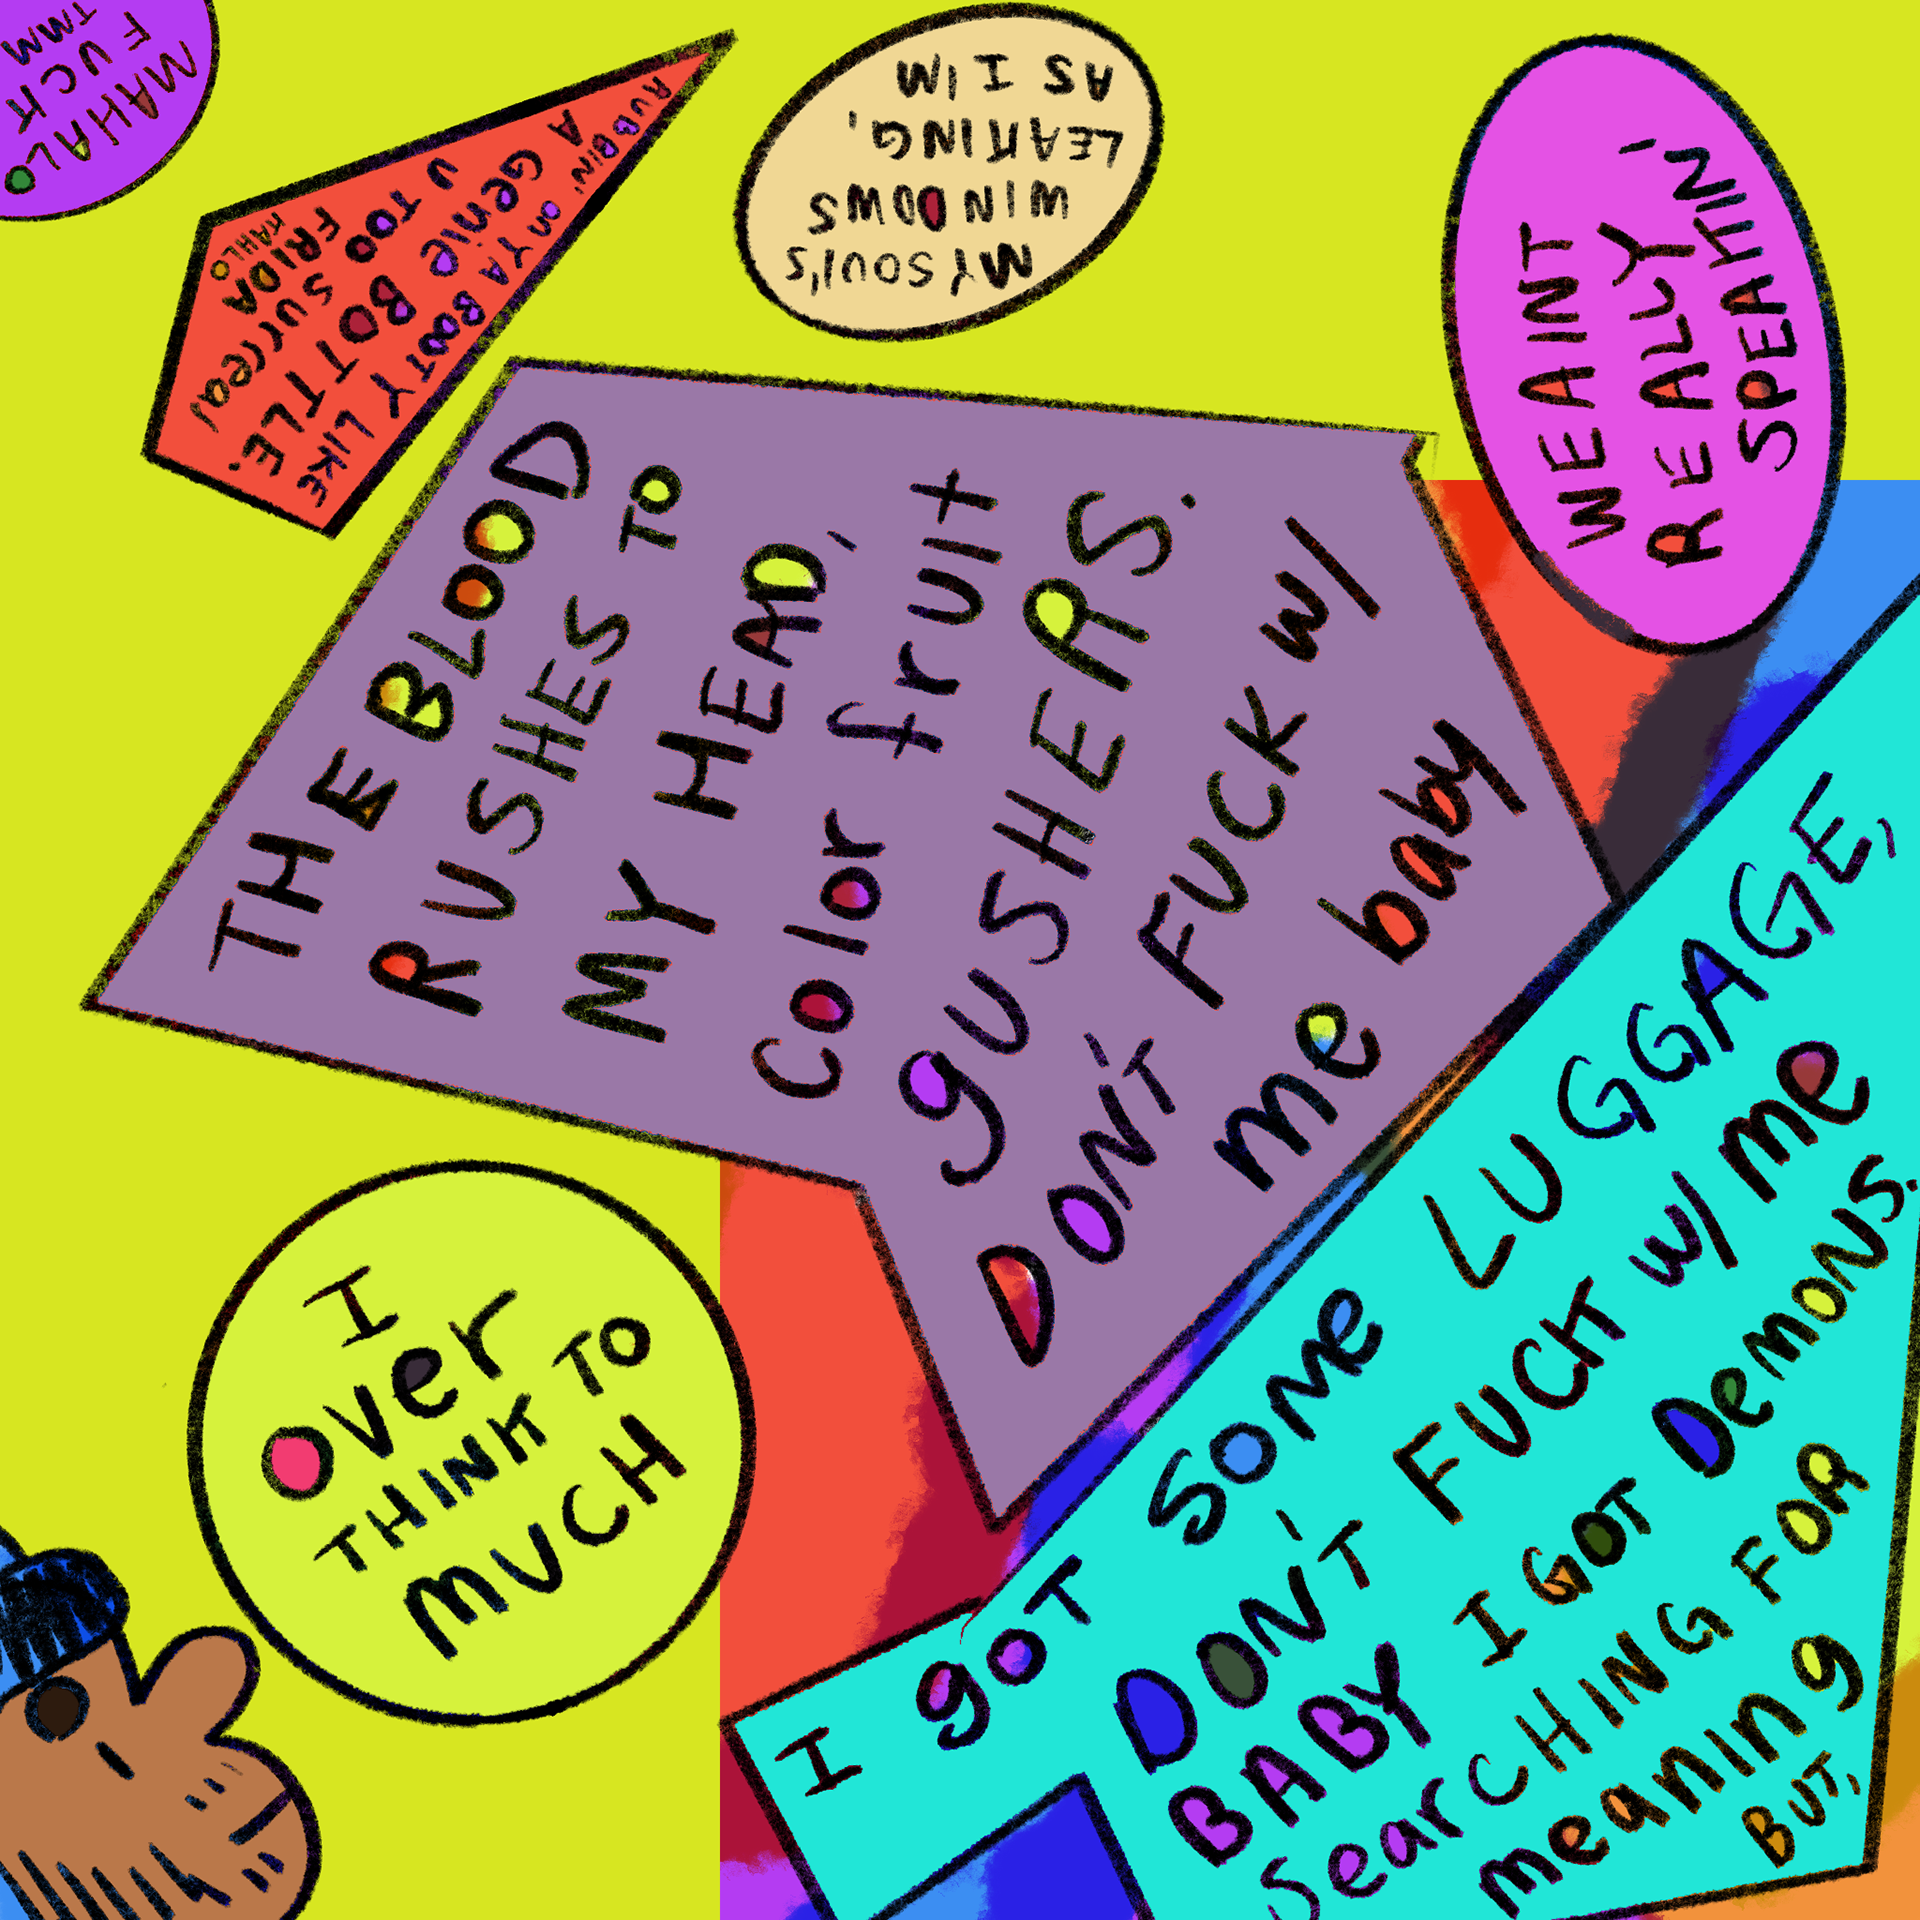 MAHALO
FUCK
TMM
RUBBIN' ON YA BOOTY LIKE
A Genie BOTTLE.
U TOO surreal
FRIDA
KAHLO
MY SOUL'S
WINDOWS
LEAKING,
AS I I'M
WE AINT
REALLY
SPEAKIN'
THE BLOOD
RUSHES TO
MY HEAD,
color fruit
gUSHERS.
DON'T FUCK w/
me baby
I
Over
THINK TO
MUCH
I goT SOME LUGGAGE,
DON'T FUCK w/ me
BABY I GOT DemONS.
SearCHING FOR
meaning
BUT,